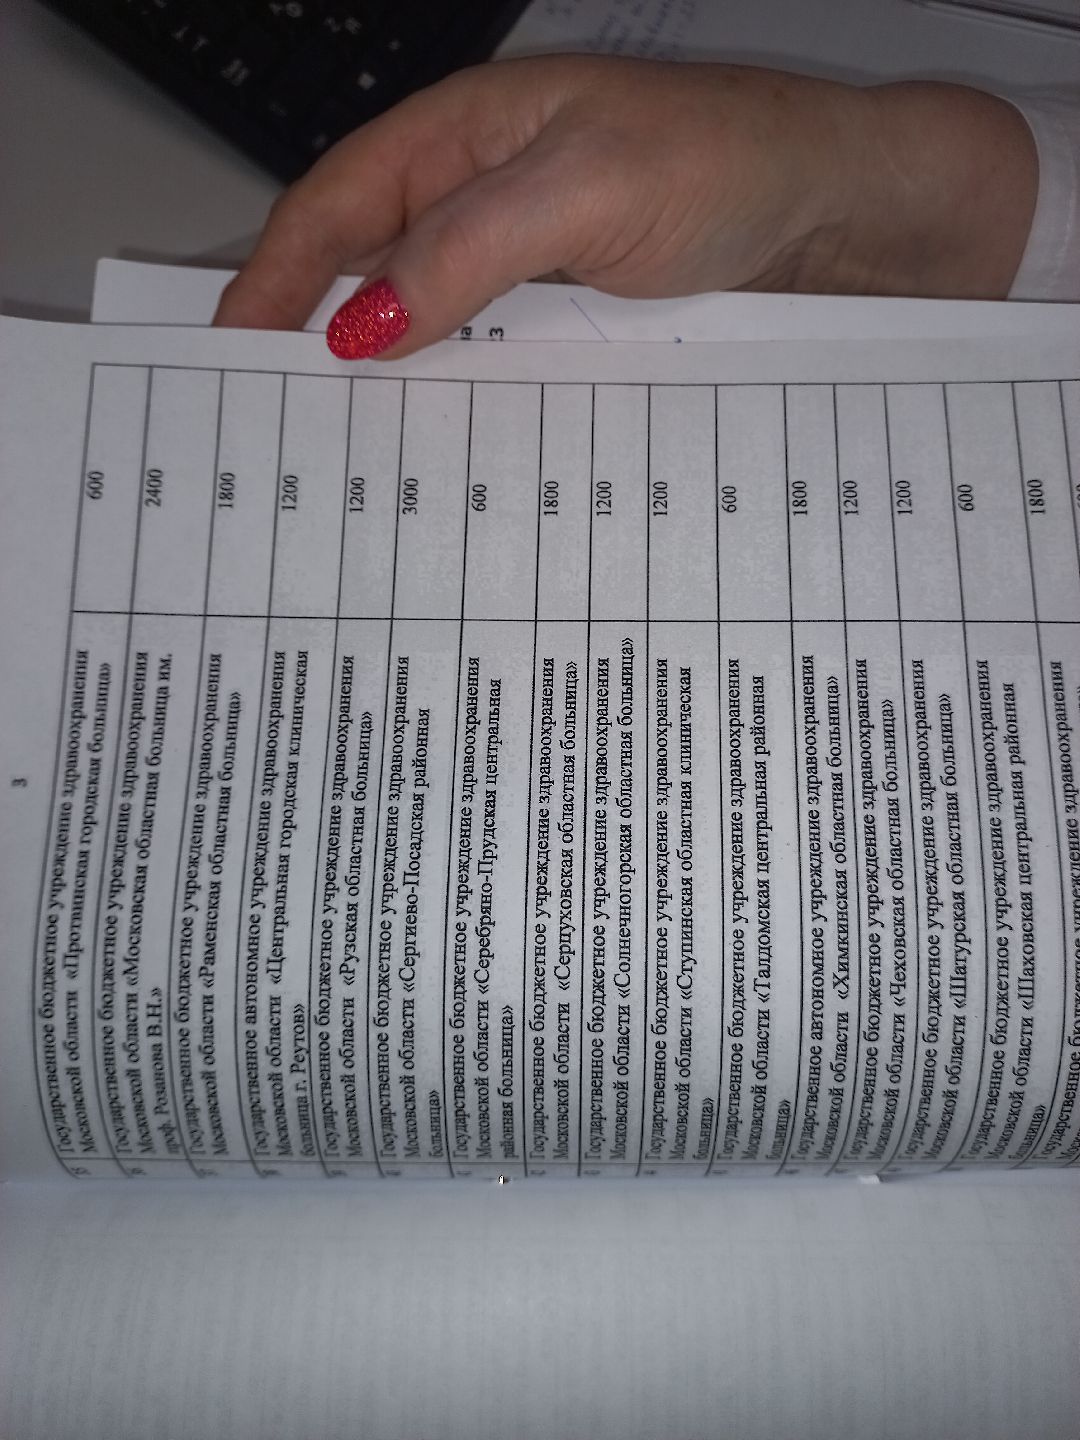 3
35 Государственное бюджетное учреждение здравоохранения
Московской области «Протвинская городская больница»
600
Государственное бюджетное учреждение здравоохранения
Московской области «Московская областная больница им.
проф. Розанова В.Н.»
2400
Государственное бюджетное учреждение здравоохранения
Московской области «Раменская областная больница»
1800
Государственное автономное учреждение здравоохранения
Московской области «Центральная городская клиническая
больница г. Реутов»
1200
Государственное бюджетное учреждение здравоохранения
Московской области «Рузская областная больница»
1200
Государственное бюджетное учреждение здравоохранения
Московской области «Сергиево-Посадская районная
больница»
3000
Государственное бюджетное учреждение здравоохранения
Московской области «Серебряно-Прудская центральная
районная больница»
600
Государственное бюджетное учреждение здравоохранения
Московской области «Серпуховская областная больница»
1800
Государственное бюджетное учреждение здравоохранения
Московской области «Солнечногорская областная больница»
1200
Государственное бюджетное учреждение здравоохранения
Московской области «Ступинская областная клиническая
больница»
1200
Государственное бюджетное учреждение здравоохранения
Московской области «Талдомская центральная районная
больница»
600
Государственное автономное учреждение здравоохранения
Московской области «Химкинская областная больница»
1800
Государственное бюджетное учреждение здравоохранения
Московской области «Чеховская областная больница»
1200
Государственное бюджетное учреждение здравоохранения
Московской области «Шатурская областная больница»
1200
Государственное бюджетное учреждение здравоохранения
Московской области «Шаховская центральная районная
больница»
600
Государственное бюджетное учреждение здравоохранения
1800